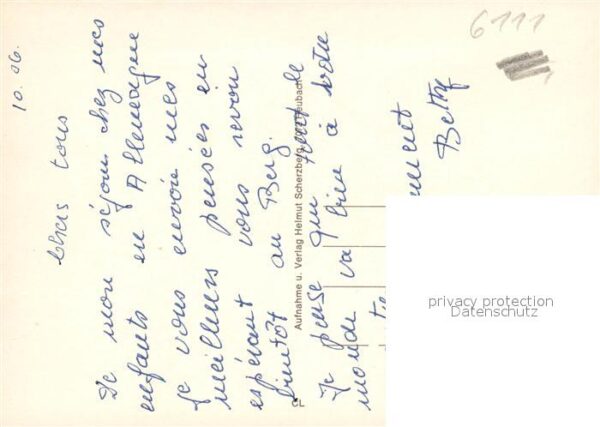 10.06.
Chers tous
De mon séjour chez mes
enfants en Allemagne
je vous envoie mes
meilleurs pensées en
espérant vous revoir
bientôt au Berg.
Je pense que tout le
monde va bien à votre
Betty
Aufnahme u. Verlag Helmut Scherzberg
6111
privacy protection
Datenschutz